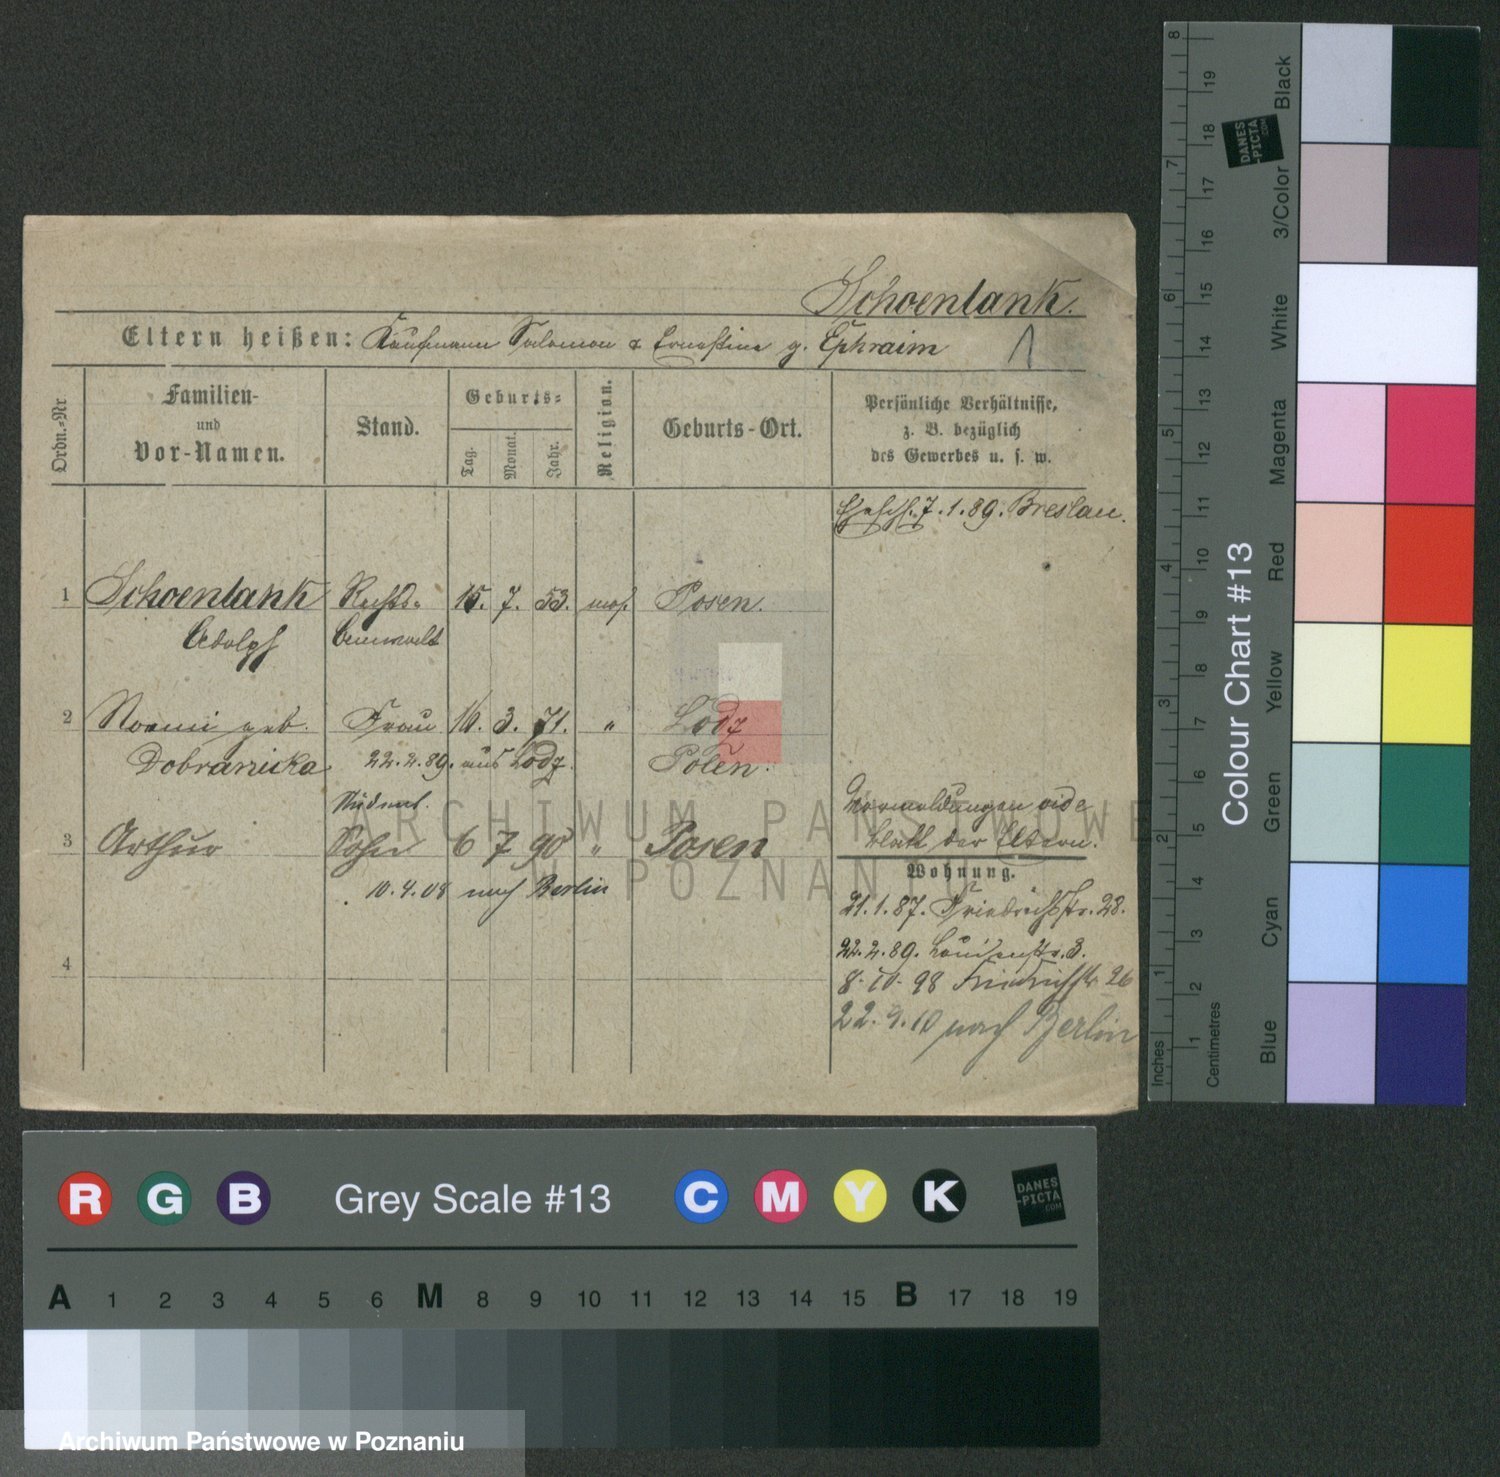 Schoenlank.
Eltern heißen: Kaufmann Salomon & Ernestine g. Ephraim
Ordn.-Nr
Familien-
und
Vor-Namen.
Stand.
Geburts-
Tag.
Monat.
Jahr.
Religion.
Geburts-Ort.
Persönliche Verhältnisse,
z. B. bezüglich
des Gewerbes u. s. w.
Eheschl. 7.1.89. Breslau.
1 Schoenlank Rechts- 15. 7. 53. mos. Posen.
Adolph anwalt
2 Noemi geb. Frau 16. 3. 71. " Lodz
Dobranicka 22.2.89. aus Lodz. Polen.
Student.
3 Arthur Sohn 6 7 90 " Posen
10.4.08 nach Berlin
4
Vormeldungen vide
Blatt der Eltern.
Wohnung.
21.1.87. Friedrichstr. 28.
22.2.89. Louisenstr. 3.
8.10.98 Friedrichstr 26
22.9.10 nach Berlin
ARCHIWUM PAŃSTWOWE
W POZNANIU
Inches 1 2 3 4 5 6 7 8
Centimetres 1 2 3 4 5 6 7 8 9 10 11 12 13 14 15 16 17 18 19
Colour Chart #13
Blue Cyan Green Yellow Red Magenta White 3/Color Black
DANES
-PICTA
.COM
R G B Grey Scale #13 C M Y K
DANES
-PICTA
.COM
A 1 2 3 4 5 6 M 8 9 10 11 12 13 14 15 B 17 18 19
Archiwum Państwowe w Poznaniu